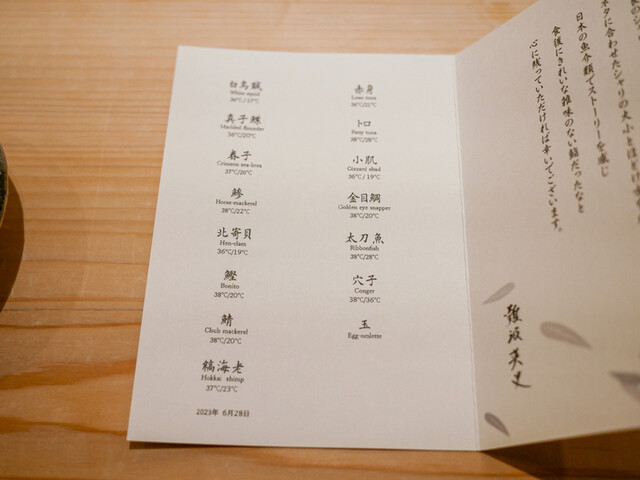 白烏賊
White squid
36℃/17℃
真子鰈
Marbled flounder
36℃/20℃
春子
Crimson sea-bream
37℃/20℃
鯵
Horse-mackerel
38℃/22℃
北寄貝
Hen-clam
36℃/19℃
鰹
Bonito
38℃/20℃
鯖
Chub mackerel
38℃/20℃
縞海老
Hokkai shrimp
37℃/23℃
2023年 6月28日
赤身
Lean tuna
36℃/21℃
トロ
Fatty tuna
38℃/28℃
小肌
Gizzard shad
36℃ / 19℃
金目鯛
Golden eye snapper
38℃/20℃
太刀魚
Ribbonfish
38℃/28℃
穴子
Conger
38℃/36℃
玉
Egg-omlette
ネタに合わせたシャリの大小と
日本の魚介類でストーリーを感じ
食後にきれいな雑味のない鮨だったなと
心に残っていただければ幸いでございます。
難波英史